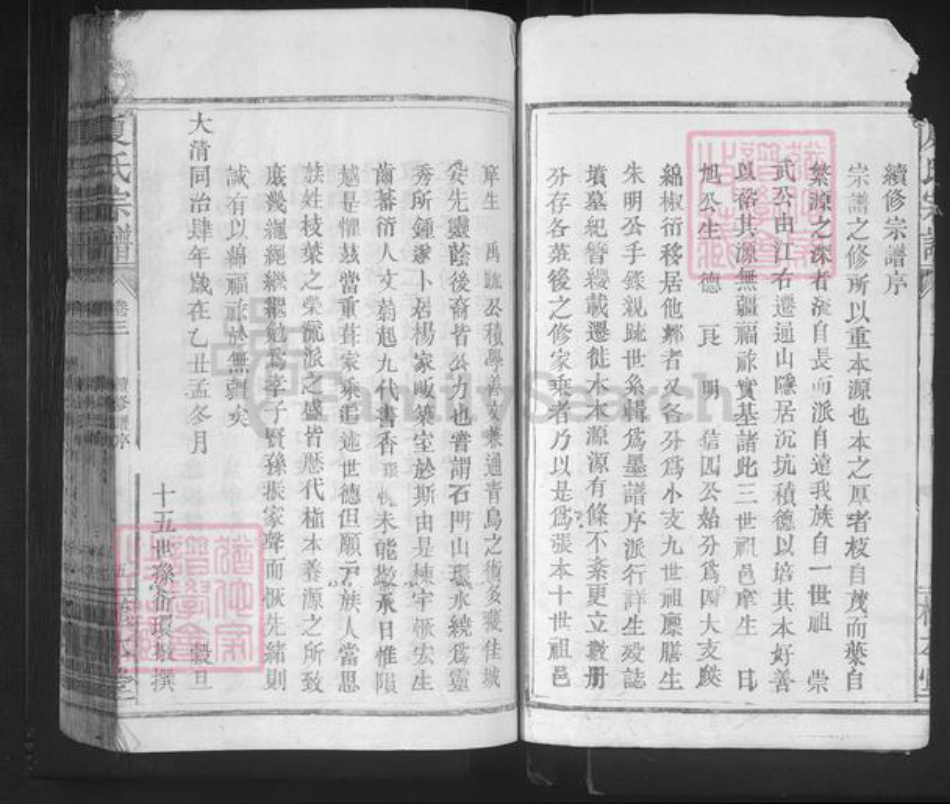 續修宗譜序
宗譜之修所以重本源也本之厚者枝自茂而葉自
繁源之深者流自長而派自遠我族自一世祖 崇
武公由江右遷通山隱居沉坑積德以培其本好善
以裕其源無疆福祚實基諸此三世祖邑庠生 日
旭公生 德 民 明 信四公始分為四大支厥
綿椒衍移居他鄉者又各分為小支九世祖廩膳生
朱明公手錄親疏世系輯為墨譜序派行詳生歿誌
墳墓紀簪纓載遷徙木本源源有條不紊更立數册
分存各莊後之修家乘者乃以是為張本十世祖邑
庠生 禹 公積學善文兼通青烏之術多獲佳城
安先靈蔭後裔皆公力也嘗謂石門山環水繞為靈
秀所鍾遂卜居楊家畈築室於斯由是棟宇恢宏生
齒蕃衍人文蔚起九代書香 未能 永日惟隕
越是懼茲當重葺家乘追述世德但願戶族人當思
族姓枝葉之榮流派之盛皆歷代植本養源之所致
庶幾繩繩繼繼勉為孝子賢孫振家聲而恢先緒則
誠有以綿福祚於無疆矣
大清同治肆年歲在乙丑孟冬月 穀旦
十五世孫 環 撰
夏氏宗譜
卷三
續修譜序
五
FamilySearch